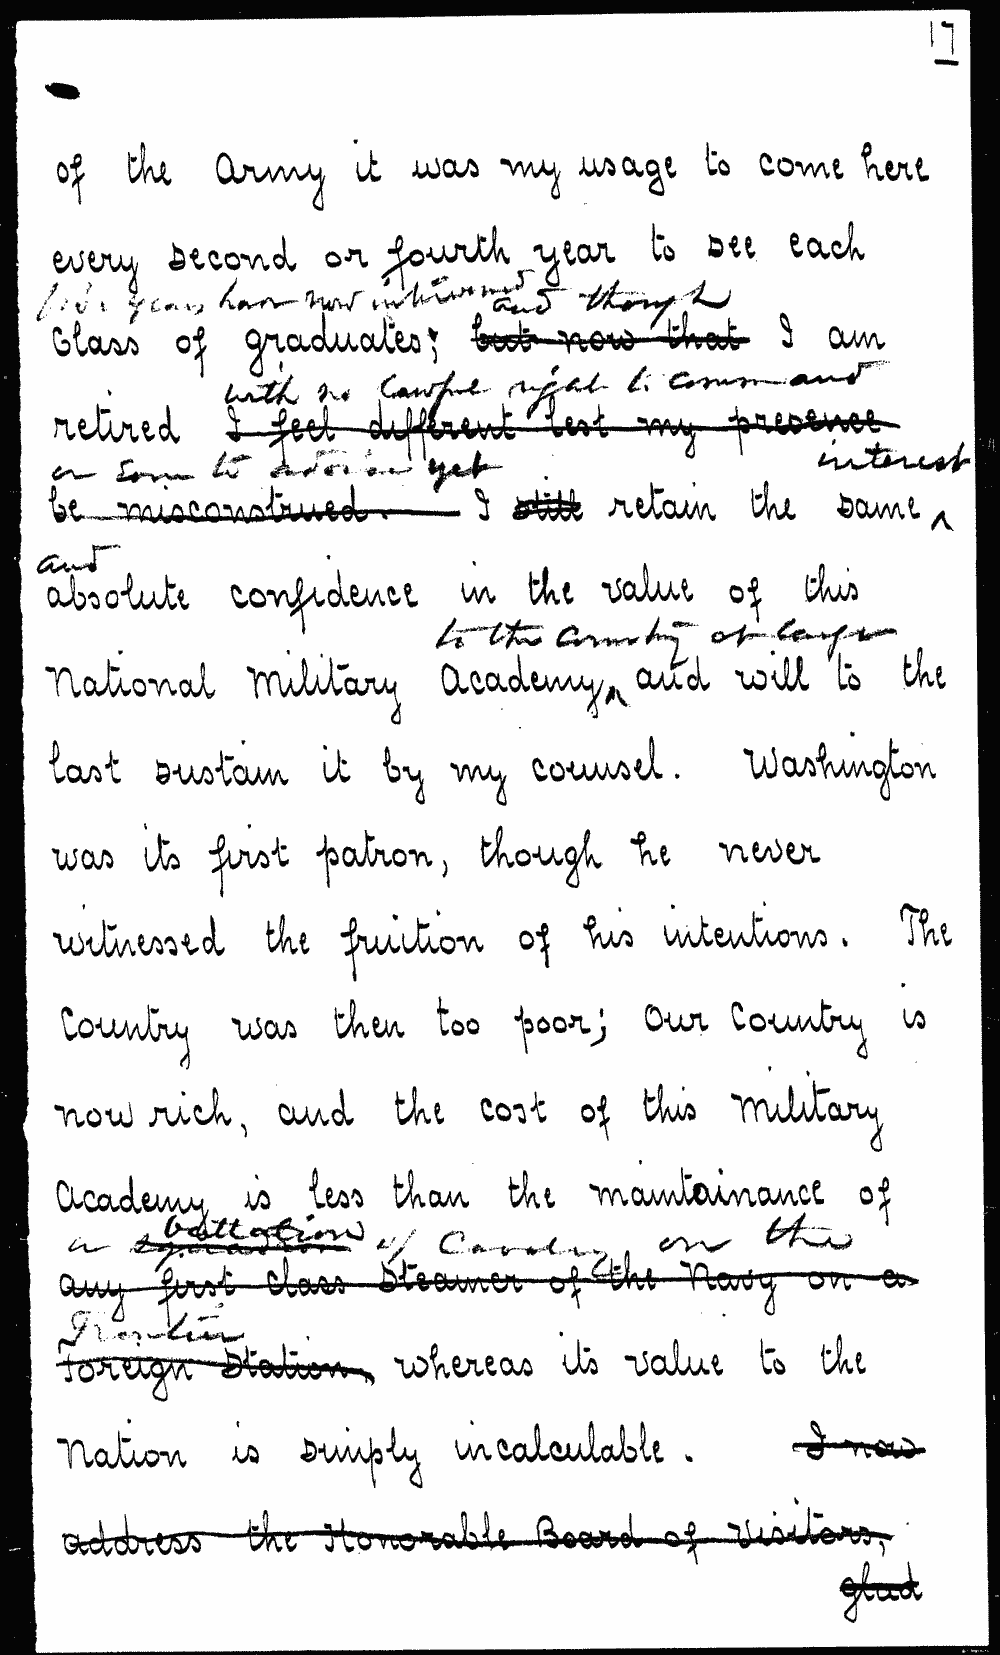 17
of the Army it was my usage to come here
every second or fourth year to see each
years have now intervened and though
Class of graduates; but now that I am
with no lawful right to command
retired I feel different lest my presence
or even to advise yet interest
be misconstrued. I still retain the same ^
and
absolute confidence in the value of this
to the Country at large
National Military Academy ^ and will to the
last sustain it by my counsel. Washington
was its first patron, though he never
witnessed the fruition of his intentions. The
Country was then too poor; Our Country is
now rich, and the cost of this Military
Academy is less than the maintainance of
battalion
a squadron of Cavalry on the
any first class Steamer of the Navy on a
Frontier
Foreign Station, whereas its value to the
Nation is simply incalculable. I now
address the Honorable Board of Visitors,
glad